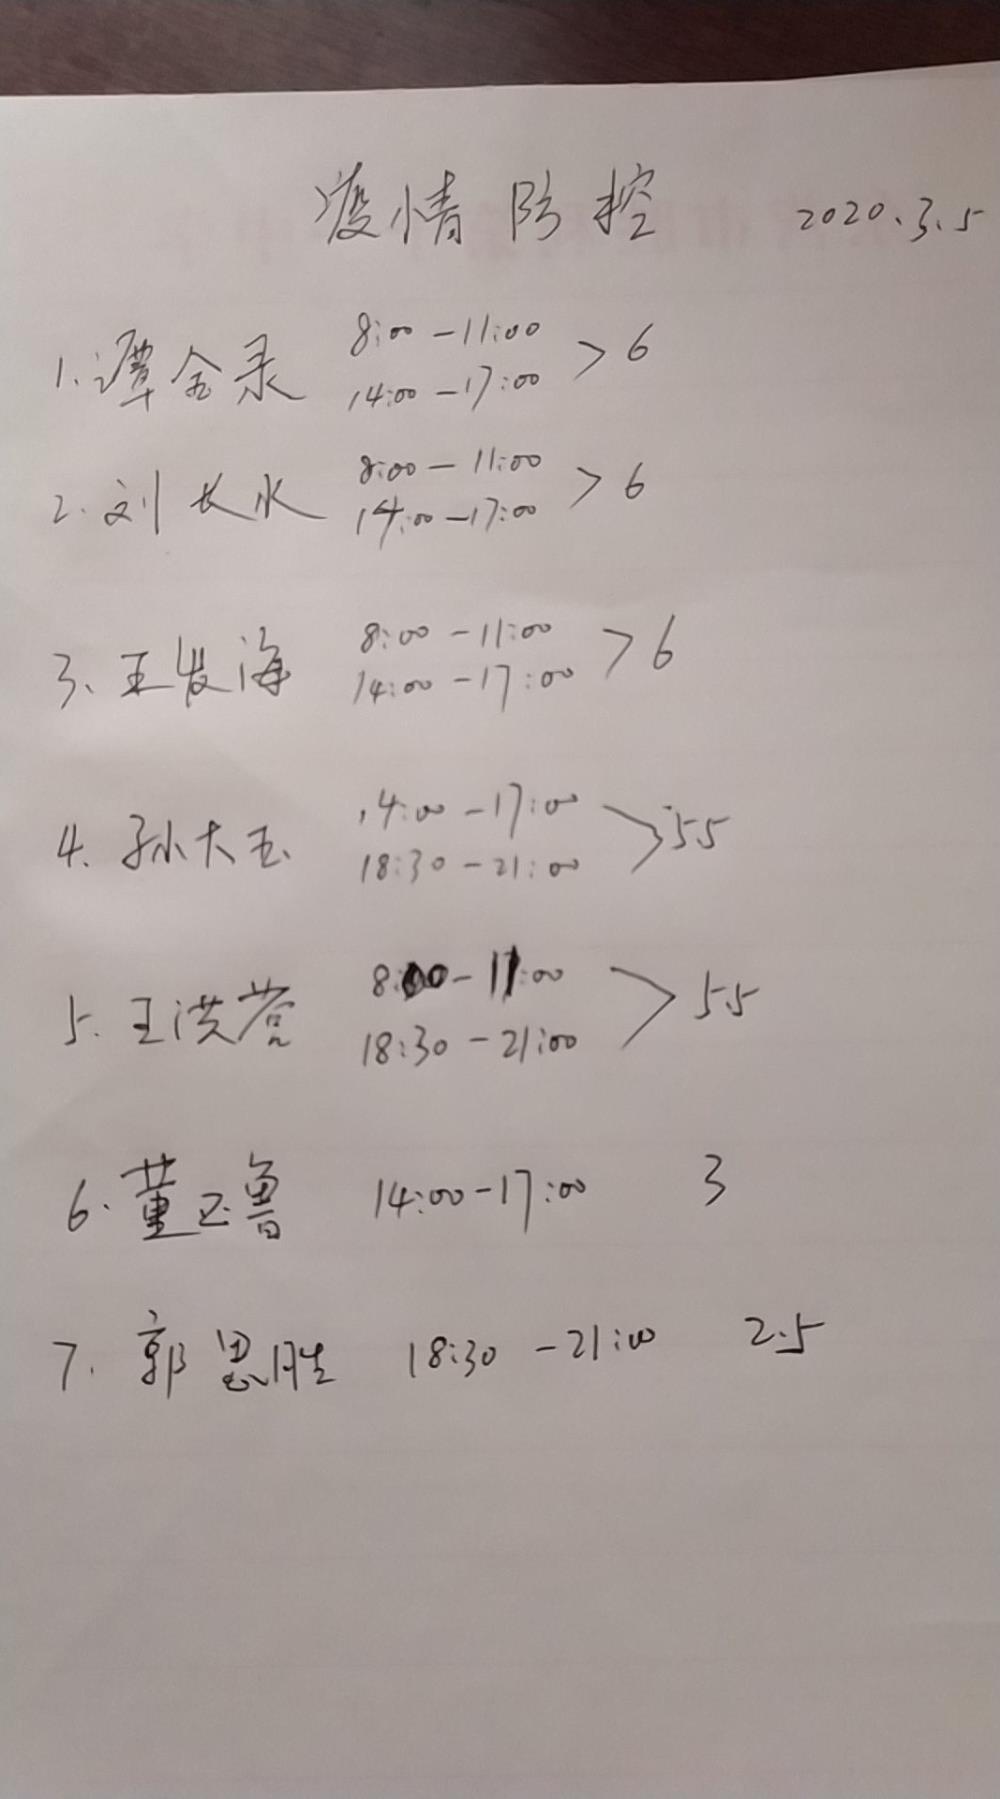 疫情防控 2020.3.5
8:00-11:00
1.谭金录 >6
14:00-17:00
8:00-11:00
2.刘长水 >6
14:00-17:00
8:00-11:00
3、王发海 >6
14:00-17:00
14:00-17:00
4.孙大玉 >5.5
18:30-21:00
8:00-11:00
5.王洪营 >5.5
18:30-21:00
6.董玉鲁 14:00-17:00 3
7.郭思胜 18:30-21:00 2.5